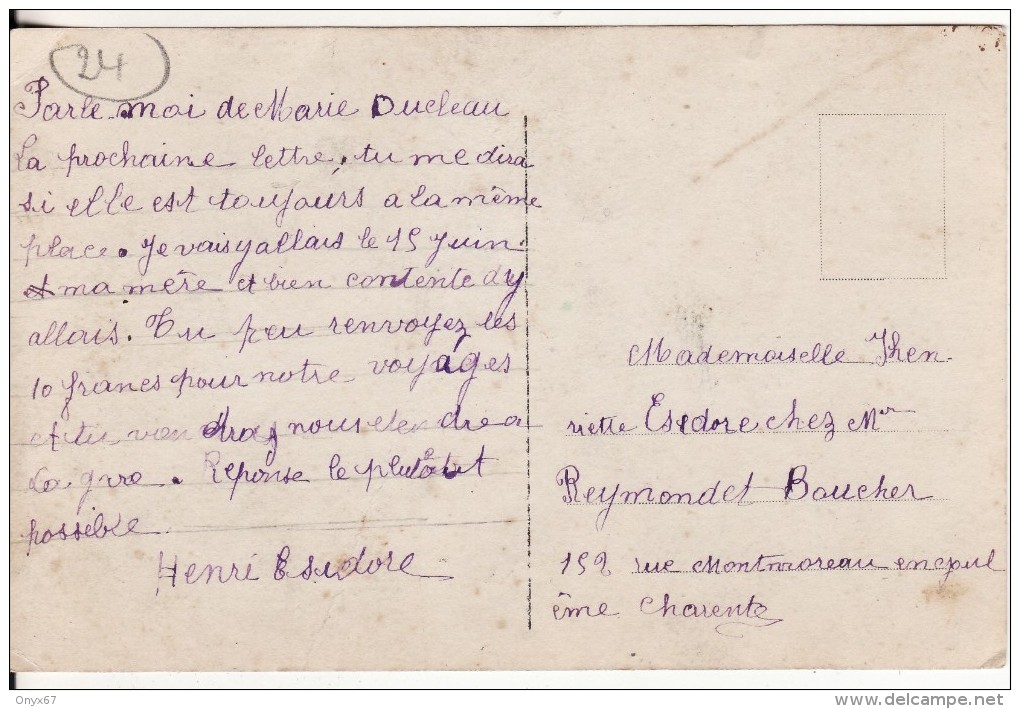 24
Parle moi de Marie Ducleau
La prochaine lettre, tu me dira
si elle est toujours a la même
place. Je vaisyallais le 15 Juin
et ma mère et bien contente dy
allais. Tu peu renvoyez les
10 francs pour notre voyages
et tu vien dras nous
La gare. Reponse le plus
possible
Henri Esidore
Mademoiselle Jhen
riette Esidore chez Mer
Reymondet Boucher
152 rue Montmoreau encpul
ême Charente
Onyx67
www.delcampe.net